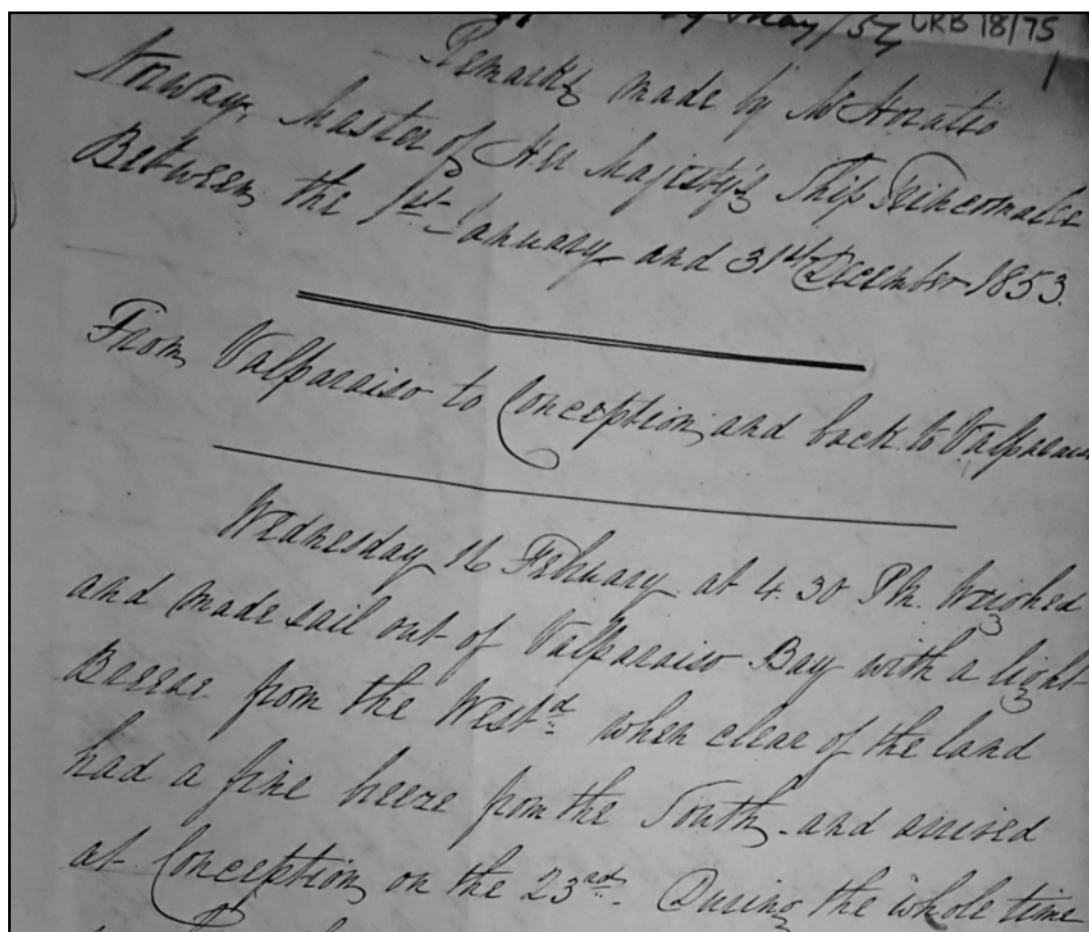 May/54 CRB 18/75
1
Remarks made by Mr Horatio
Norway, Master of Her Majesty's Ship Trincomalee
Between the 1st January and 31st December 1853.
From Valparaiso to Conception and back to Valparaiso
Wednesday 16 February at 4.30 PM. Weighed
and made sail out of Valparaiso Bay with a light
Breeze from the Westd when clear of the land
had a fine breeze from the South and arrived
at Conception on the 23rd. During the whole time